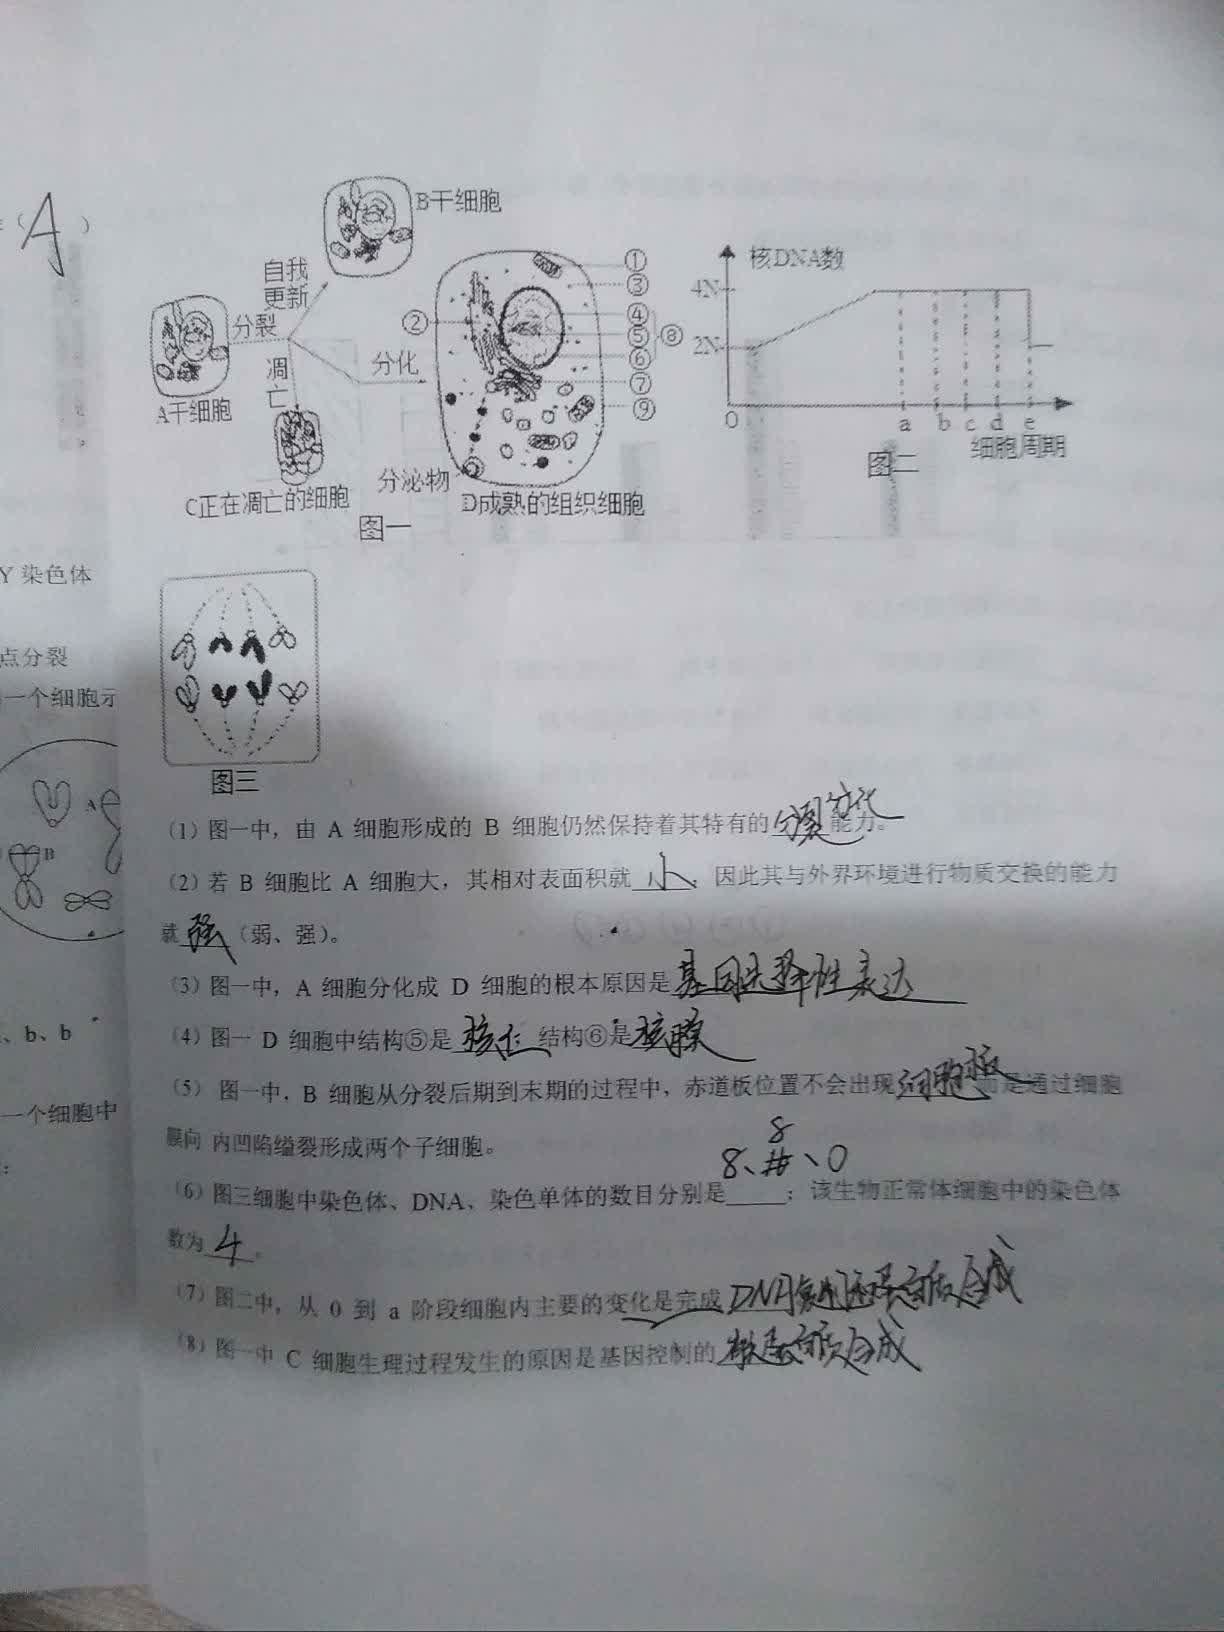 A
B干细胞
自我
更新
分裂
分化
凋
亡
A干细胞
C正在凋亡的细胞
分泌物
D成熟的组织细胞
图一
①
③
②
④
⑤
⑥
⑧
⑦
⑨
核DNA数
4N
2N
0 a b c d e
细胞周期
图二
Y 染色体
点分裂
一个细胞示
A
B
、b、b
一个细胞中
:
图三
(1) 图一中，由 A 细胞形成的 B 细胞仍然保持着其特有的分裂分化能力。
(2) 若 B 细胞比 A 细胞大，其相对表面积就 小，因此其与外界环境进行物质交换的能力
就 强 (弱、强)。
(3) 图一中，A 细胞分化成 D 细胞的根本原因是基因选择性表达
(4) 图一 D 细胞中结构⑤是 核仁 结构⑥是 核膜
(5) 图一中，B 细胞从分裂后期到末期的过程中，赤道板位置不会出现细胞板而是通过细胞
膜向 内凹陷缢裂形成两个子细胞。
8
8、、0
(6) 图三细胞中染色体、DNA、染色单体的数目分别是____；该生物正常体细胞中的染色体
数为 4 。
(7) 图二中，从 0 到 a 阶段细胞内主要的变化是完成 DNA复制蛋白质合成
(8) 图一中 C 细胞生理过程发生的原因是基因控制的 蛋白质合成